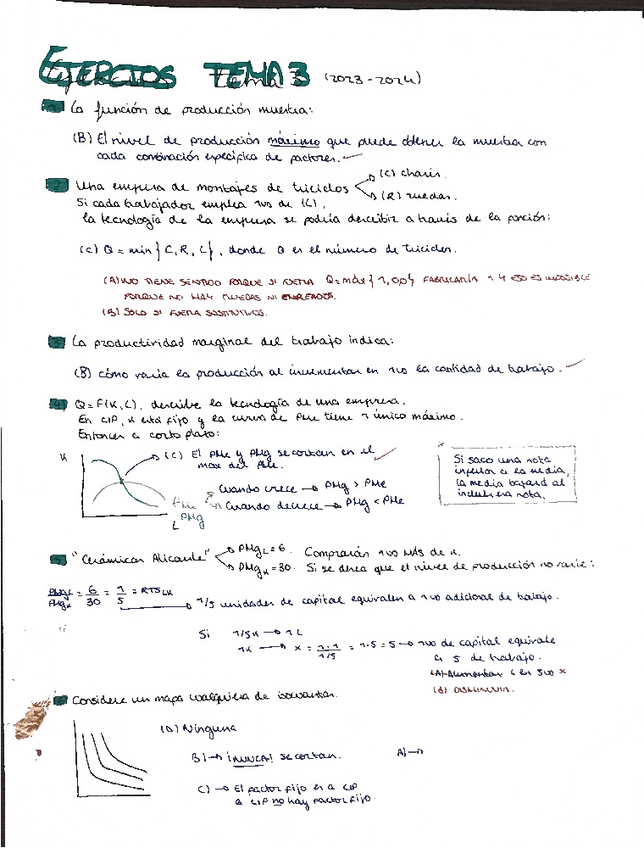 EJERCIOS TEMA 3 (2023-2024)
1 La función de producción muestra:
(B) El nivel de producción máximo que puede obtener la muestra con
cada combinación específica de factores.
2 Una empresa de montajes de triciclos (C) chasis.
(R) ruedas.
Si cada trabajador emplea 1uo de (L),
la tecnología de la empresa se podría describir a través de la porción:
(C) Q = min{C, R, L}, donde Q es el número de triciclos.
(A) NO TIENE SENTIDO PORQUE SI FUERA Q=máx{1,0,0} FABRICARÍA 1 Y ESO ES IMPOSIBLE
PORQUE NO HAY RUEDAS NI EMPLEADOS.
(B) SOLO SI FUERA SUSTITUTIVOS.
3 La productividad marginal del trabajo indica:
(B) cómo varía la producción al incrementar en 1uo la cantidad de trabajo.
4 Q=F(K,L), describe la tecnología de una empresa.
En C/P, K está fijo y la curva de PMe tiene 1 único máximo.
Entonces a corto plazo:
K
(C) El PMe y PMg se cortan en el
max del PMe.
Cuando crece → PMg > PMe
Cuando decrece → PMg < PMe
PMe
PMg
L
Si saco una nota
inferior a la media,
la media bajará al
incluir esa nota.
5 "Cerámicas Alicante" PMgL=6. Comprarán 1uo más de K.
PMgK=30. Si se desea que el nivel de producción no varíe:
PMgL/PMgK = 6/30 = 1/5 = RTS LK
1/5 unidades de capital equivalen a 1uo adicional de trabajo.
Si 1/5K → 1L
1K → X = 1·1/1/5 = 1·5 = 5 → 1uo de capital equivale
a 5 de trabajo.
(A) Aumentar L en 5uo X
(B) DISMINUIR.
6 Considere un mapa cualquiera de isocuantas.
(D) Ninguna
B) → ¡NUNCA! se cortan.
A) →
C) → El factor fijo es a C/P
a L/P no hay factor fijo.